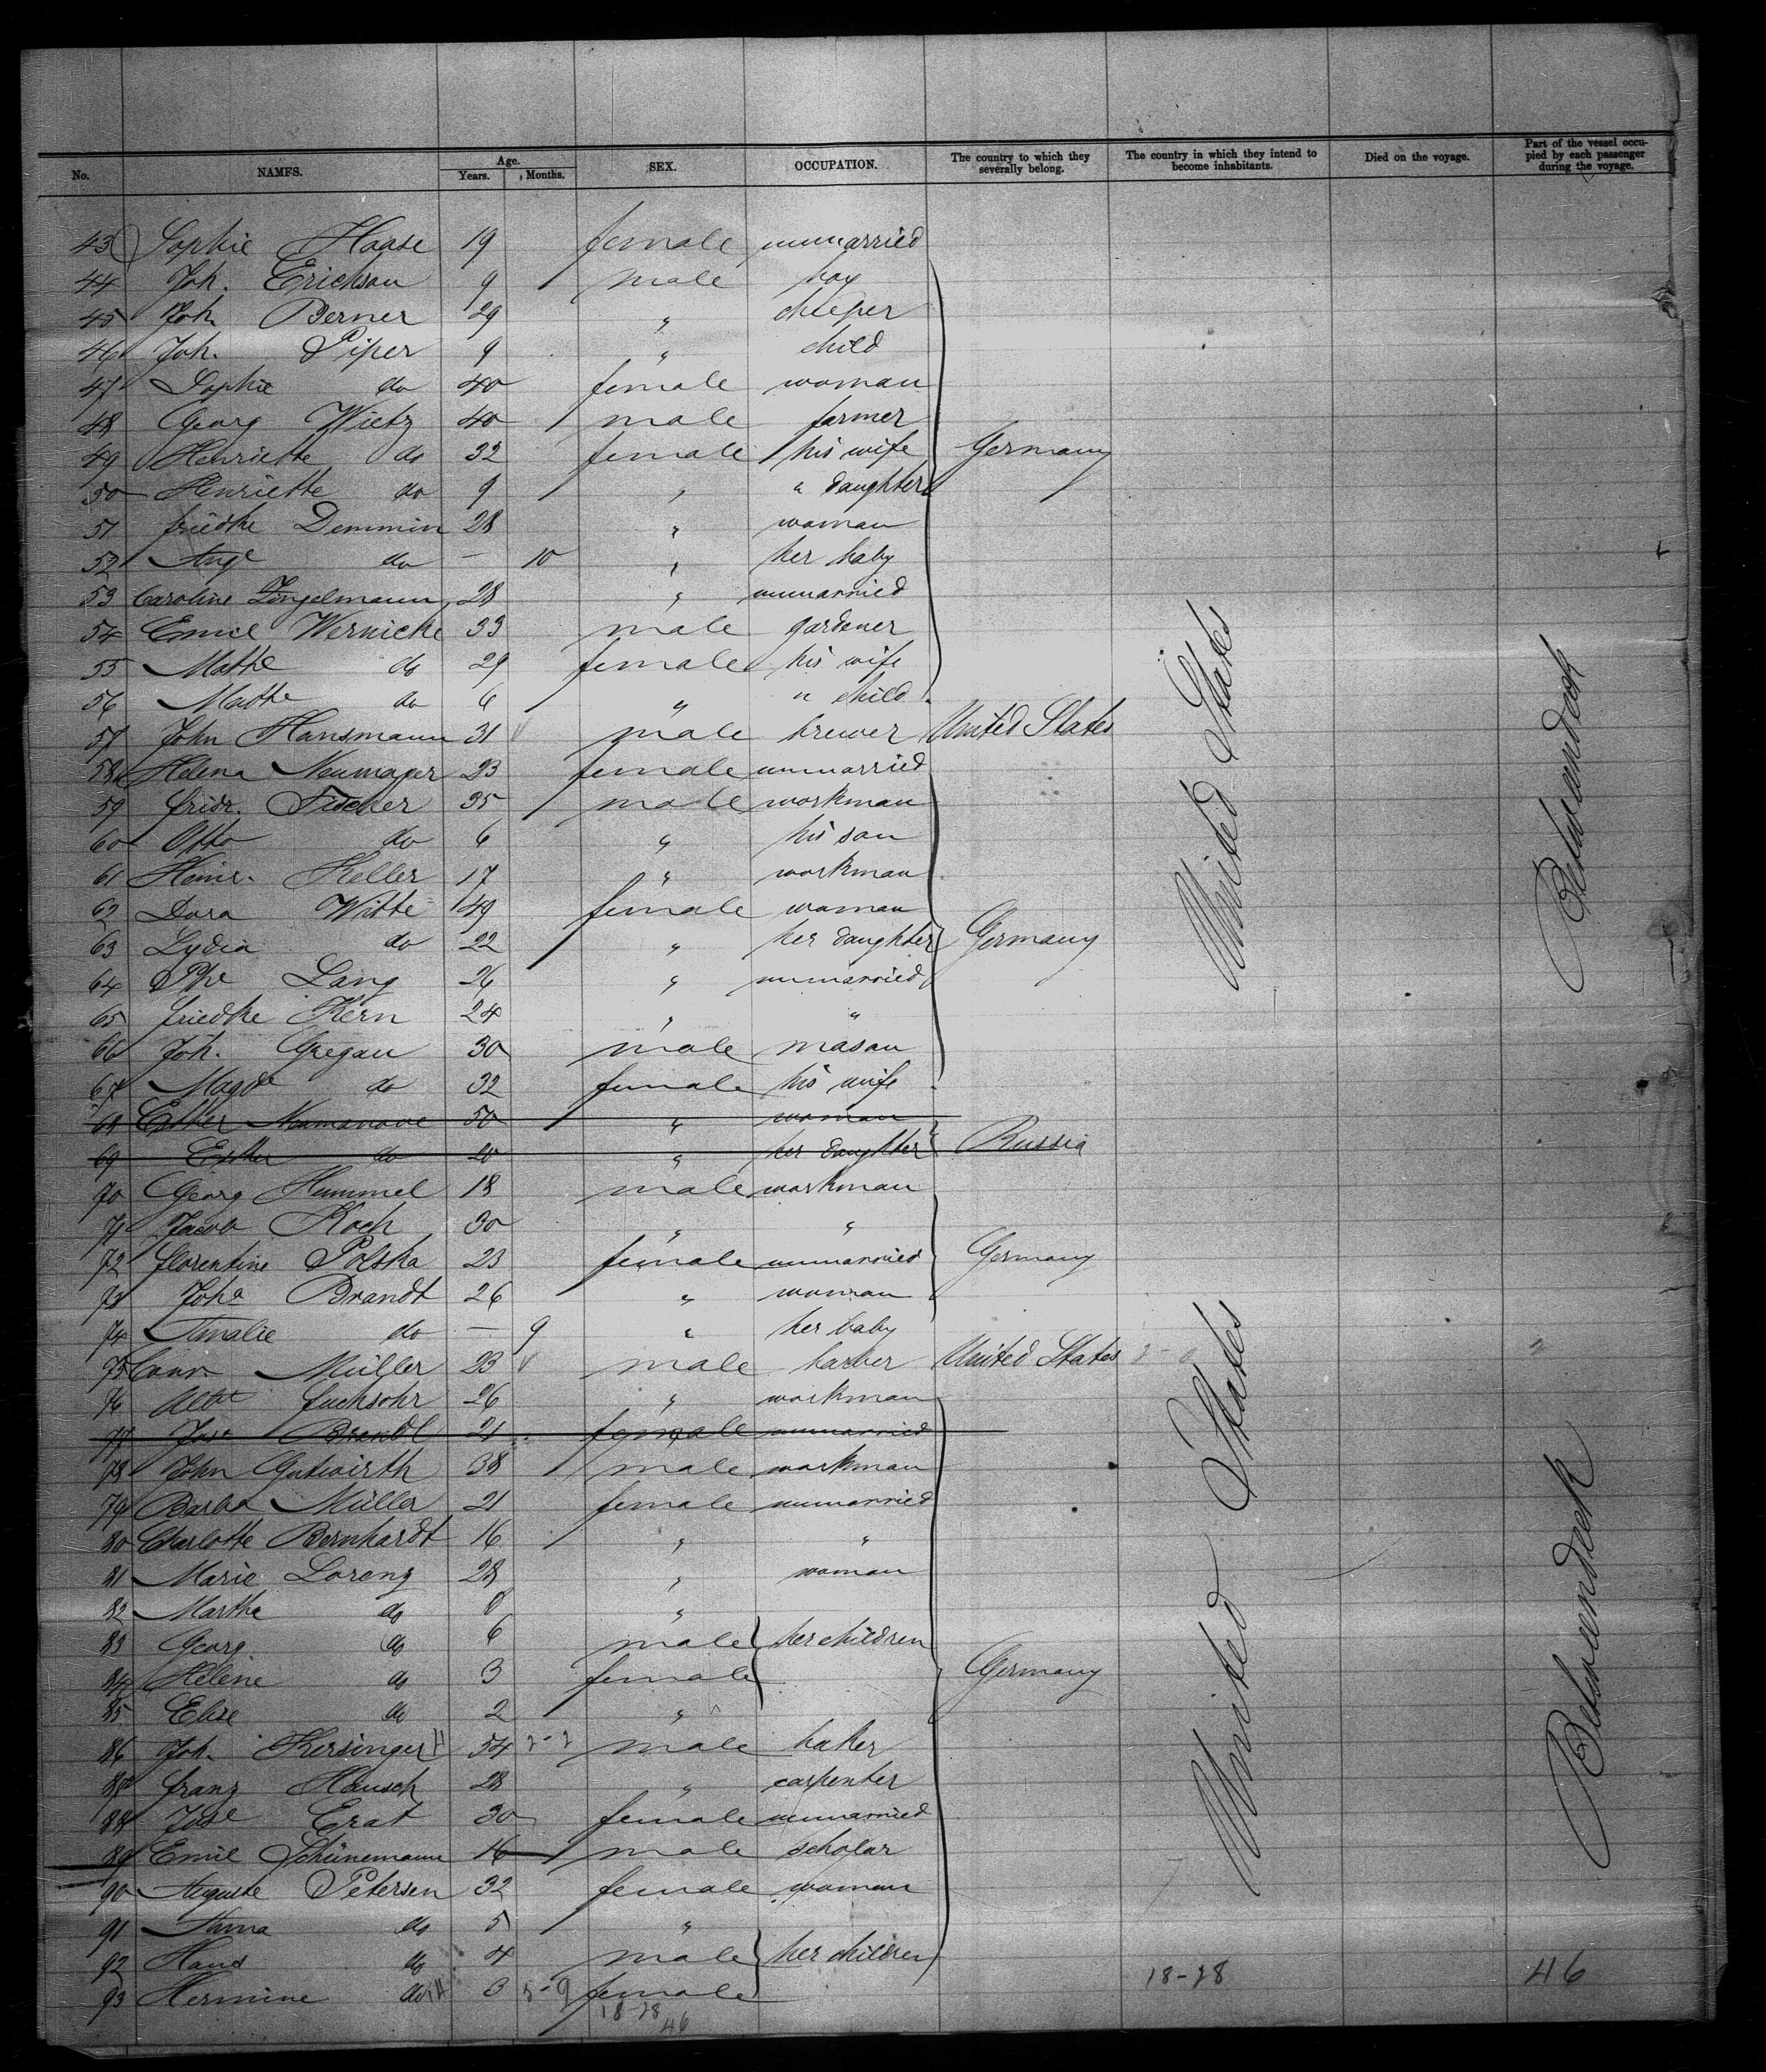 No. NAMES. Age. Years. Months. SEX. OCCUPATION. The country to which they severally belong. The country in which they intend to become inhabitants. Died on the voyage. Part of the vessel occupied by each passenger during the voyage.
43 Sophie Haase 19 female unmarried
44 Joh. Erichson 9 male boy
45 Joh. Berner 29 "
46 Joh. Piper 9 " child
47 Sophie do 40 female woman
48 Georg Wietz 40 male farmer
49 Henriette do 32 female his wife Germany
50 Henriette do 9 " " daughter
51 Friedke Demmin 28 " woman
52 Auge do — 10 " her baby
53 Caroline Lingelmann 28 " unmarried
54 Emil Wernicke 33 male gardener
55 Mathe do 29 female his wife
56 Mathe do 6 " " child
57 John Hansmann 31 male brewer United States
58 Helena Neumayer 23 female unmarried
59 Fridr. Fischer 35 male workman
60 Otto do 6 " his son
61 Heinr. Keller 17 " workman
62 Dora Witte 49 female woman
63 Lydia do 22 " her daughter Germany
64 Phe Lang 26 " unmarried
65 Friedke Kern 24 " "
66 Joh. Gregau 30 male mason
67 Magde do 32 female his wife
68 Esther 50 " woman
69 Esther do 20 " her daughter Russia
70 Georg Hummel 18 male workman
71 Jacob Koch 30 " "
72 Florentine Polska 23 female unmarried Germany
73 Joha Brandt 26 " woman
74 Amalie do — 9 " her baby
75 Conr. Müller 23 male barber United States
76 Albt Fuchsohr 26 " workman
77 Brandl 21 female unmarried
78 John Gutwirth 38 male workman
79 Barba Müller 21 female unmarried
80 Charlotte Bernhardt 16 " "
81 Marie Lorenz 28 " woman
82 Martha do "
83 Georg do 6 male her children
84 Helene do 3 female Germany
85 Elise do 2 "
86 Joh. Kersinger 54 male baker
87 Franz Hausch 28 " carpenter
88 Erat 30 female unmarried
89 Emil Schünemann 16 male scholar
90 Auguste Petersen 32 female woman
91 Anna do 5 "
92 Hans do 4 male her children
93 Hermine do 3 female
United States
United States
Betweendeck
Betweendeck
18-28
46
18-28
46